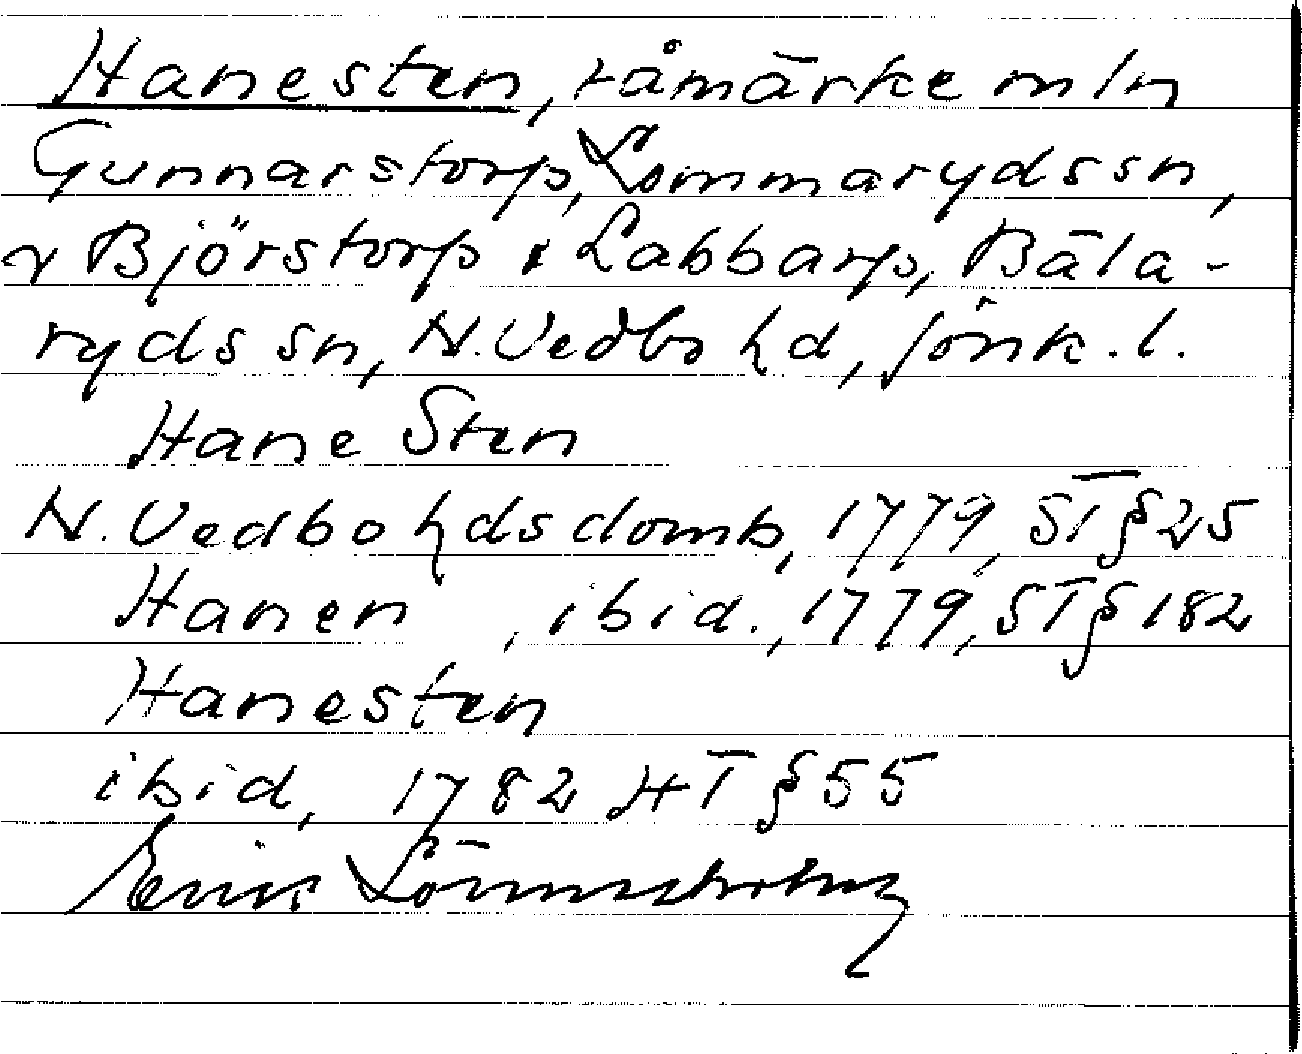 Hanesten, råmärke mln
Gunnarstorp, Lommaryds sn,
o Björstorp o Labbarp, Bäla-
ryds sn, N. Vedbo hd, Jönk. l.
Hane Sten
N. Vedbo hds domb, 1779, ST § 25
Hanen, ibid., 1779, ST § 182
Hanesten
ibid, 1782 HT § 55
Erik